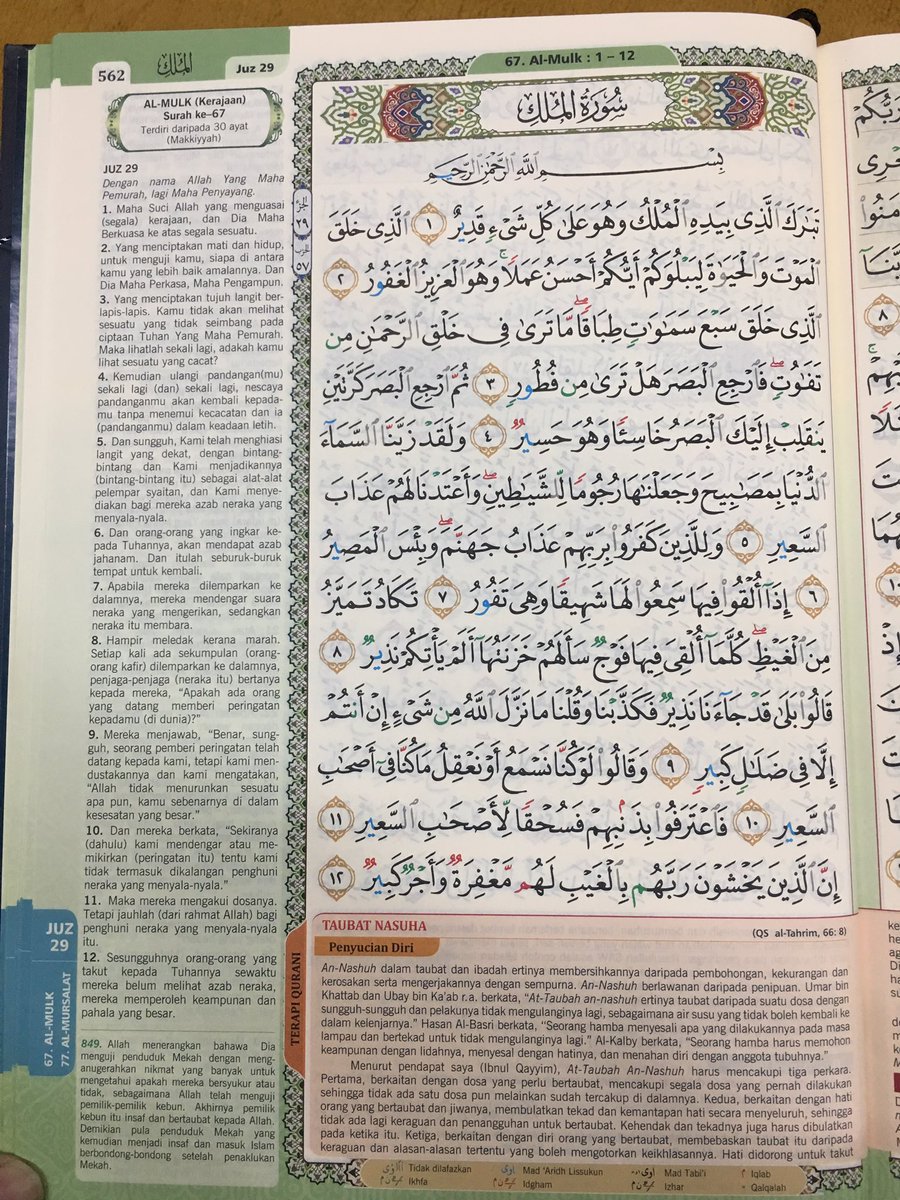 562
الملك
Juz 29
67. Al-Mulk : 1 – 12
AL-MULK (Kerajaan)
Surah ke–67
Terdiri daripada 30 ayat
(Makkiyyah)
JUZ 29
Dengan nama Allah Yang Maha
Pemurah, lagi Maha Penyayang.
1. Maha Suci Allah yang menguasai
(segala) kerajaan, dan Dia Maha
Berkuasa ke atas segala sesuatu.
2. Yang menciptakan mati dan hidup,
untuk menguji kamu, siapa di antara
kamu yang lebih baik amalannya. Dan
Dia Maha Perkasa, Maha Pengampun.
3. Yang menciptakan tujuh langit ber-
lapis-lapis. Kamu tidak akan melihat
sesuatu yang tidak seimbang pada
ciptaan Tuhan Yang Maha Pemurah.
Maka lihatlah sekali lagi, adakah kamu
lihat sesuatu yang cacat?
4. Kemudian ulangi pandangan(mu)
sekali lagi (dan) sekali lagi, nescaya
pandanganmu akan kembali kepada-
mu tanpa menemui kecacatan dan ia
(pandanganmu) dalam keadaan letih.
5. Dan sungguh, Kami telah menghiasi
langit yang dekat, dengan bintang-
bintang dan Kami menjadikannya
(bintang-bintang itu) sebagai alat-alat
pelempar syaitan, dan Kami menye-
diakan bagi mereka azab neraka yang
menyala-nyala.
6. Dan orang-orang yang ingkar ke-
pada Tuhannya, akan mendapat azab
jahanam. Dan itulah seburuk-buruk
tempat untuk kembali.
7. Apabila mereka dilemparkan ke
dalamnya, mereka mendengar suara
neraka yang mengerikan, sedangkan
neraka itu membara.
8. Hampir meledak kerana marah.
Setiap kali ada sekumpulan (orang-
orang kafir) dilemparkan ke dalamnya,
penjaga-penjaga (neraka itu) bertanya
kepada mereka, “Apakah ada orang
yang datang memberi peringatan
kepadamu (di dunia)?”
9. Mereka menjawab, “Benar, sung-
guh, seorang pemberi peringatan telah
datang kepada kami, tetapi kami men-
dustakannya dan kami mengatakan,
“Allah tidak menurunkan sesuatu
apa pun, kamu sebenarnya di dalam
kesesatan yang besar.”
10. Dan mereka berkata, “Sekiranya
(dahulu) kami mendengar atau me-
mikirkan (peringatan itu) tentu kami
tidak termasuk dikalangan penghuni
neraka yang menyala-nyala.”
11. Maka mereka mengakui dosanya.
Tetapi jauhlah (dari rahmat Allah) bagi
penghuni neraka yang menyala-nyala
itu.
12. Sesungguhnya orang-orang yang
takut kepada Tuhannya sewaktu
mereka belum melihat azab neraka,
mereka memperoleh keampunan dan
pahala yang besar.
849. Allah menerangkan bahawa Dia
menguji penduduk Mekah dengan meng-
anugerahkan nikmat yang banyak untuk
mengetahui apakah mereka bersyukur atau
tidak, sebagaimana Allah telah menguji
pemilik-pemilik kebun. Akhirnya pemilik
kebun itu insaf dan bertaubat kepada Allah.
Demikian pula penduduk Mekah yang
kemudian menjadi insaf dan masuk Islam
berbondong-bondong setelah penaklukan
Mekah.
JUZ
29
67. AL-MULK
77. AL-MURSALAT
الجزء
٢٩
الحزب
٥٧
سُورَةُ الْمُلْكِ
بِسْمِ اللَّهِ الرَّحْمَٰنِ الرَّحِيمِ
تَبَارَكَ الَّذِي بِيَدِهِ الْمُلْكُ وَهُوَ عَلَىٰ كُلِّ شَيْءٍ قَدِيرٌ ١ الَّذِي خَلَقَ
الْمَوْتَ وَالْحَيَوٰةَ لِيَبْلُوَكُمْ أَيُّكُمْ أَحْسَنُ عَمَلًا ۚ وَهُوَ الْعَزِيزُ الْغَفُورُ ٢
الَّذِي خَلَقَ سَبْعَ سَمَٰوَٰتٍ طِبَاقًا ۖ مَّا تَرَىٰ فِي خَلْقِ الرَّحْمَٰنِ مِن
تَفَٰوُتٍ ۖ فَارْجِعِ الْبَصَرَ هَلْ تَرَىٰ مِن فُطُورٍ ٣ ثُمَّ ارْجِعِ الْبَصَرَ كَرَّتَيْنِ
يَنقَلِبْ إِلَيْكَ الْبَصَرُ خَاسِئًا وَهُوَ حَسِيرٌ ٤ وَلَقَدْ زَيَّنَّا السَّمَاءَ
الدُّنْيَا بِمَصَٰبِيحَ وَجَعَلْنَٰهَا رُجُومًا لِّلشَّيَٰطِينِ ۖ وَأَعْتَدْنَا لَهُمْ عَذَابَ
السَّعِيرِ ٥ وَلِلَّذِينَ كَفَرُوا بِرَبِّهِمْ عَذَابُ جَهَنَّمَ ۖ وَبِئْسَ الْمَصِيرُ
٦ إِذَا أُلْقُوا فِيهَا سَمِعُوا لَهَا شَهِيقًا وَهِيَ تَفُورُ ٧ تَكَادُ تَمَيَّزُ
مِنَ الْغَيْظِ ۖ كُلَّمَا أُلْقِيَ فِيهَا فَوْجٌ سَأَلَهُمْ خَزَنَتُهَا أَلَمْ يَأْتِكُمْ نَذِيرٌ ٨
قَالُوا بَلَىٰ قَدْ جَاءَنَا نَذِيرٌ فَكَذَّبْنَا وَقُلْنَا مَا نَزَّلَ اللَّهُ مِن شَيْءٍ إِنْ أَنتُمْ
إِلَّا فِي ضَلَٰلٍ كَبِيرٍ ٩ وَقَالُوا لَوْ كُنَّا نَسْمَعُ أَوْ نَعْقِلُ مَا كُنَّا فِي أَصْحَٰبِ
السَّعِيرِ ١٠ فَاعْتَرَفُوا بِذَنبِهِمْ فَسُحْقًا لِّأَصْحَٰبِ السَّعِيرِ ١١
إِنَّ الَّذِينَ يَخْشَوْنَ رَبَّهُم بِالْغَيْبِ لَهُم مَّغْفِرَةٌ وَأَجْرٌ كَبِيرٌ ١٢
TERAPI QURANI
TAUBAT NASUHA
(QS al-Tahrim, 66: 8)
Penyucian Diri
An-Nashuh dalam taubat dan ibadah ertinya membersihkannya daripada pembohongan, kekurangan dan
kerosakan serta mengerjakannya dengan sempurna. An-Nashuh berlawanan daripada penipuan. Umar bin
Khattab dan Ubay bin Ka'ab r.a. berkata, “At-Taubah an-nashuh ertinya taubat daripada suatu dosa dengan
sungguh-sungguh dan pelakunya tidak mengulanginya lagi, sebagaimana air susu yang tidak boleh kembali ke
dalam kelenjarnya.” Hasan Al-Basri berkata, “Seorang hamba menyesali apa yang dilakukannya pada masa
lampau dan bertekad untuk tidak mengulanginya lagi.” Al-Kalby berkata, “Seorang hamba harus memohon
keampunan dengan lidahnya, menyesal dengan hatinya, dan menahan diri dengan anggota tubuhnya.”
Menurut pendapat saya (Ibnul Qayyim), At-Taubah An-Nashuh harus mencakupi tiga perkara.
Pertama, berkaitan dengan dosa yang perlu bertaubat, mencakupi segala dosa yang pernah dilakukan
sehingga tidak ada satu dosa pun melainkan sudah tercakup di dalamnya. Kedua, berkaitan dengan hati
orang yang bertaubat dan jiwanya, membulatkan tekad dan kemantapan hati secara menyeluruh, sehingga
tidak ada lagi keraguan dan penangguhan untuk bertaubat. Kehendak dan tekadnya juga harus dibulatkan
pada ketika itu. Ketiga, berkaitan dengan diri orang yang bertaubat, membebaskan taubat itu daripada
keraguan dan alasan-alasan tertentu yang boleh mengotorkan keikhlasannya. Hati didorong untuk takut
Tidak dilafazkan
Mad 'Aridh Lissukun
Mad Tabi'i
Iqlab
Ikhfa
Idgham
Izhar
Qalqalah